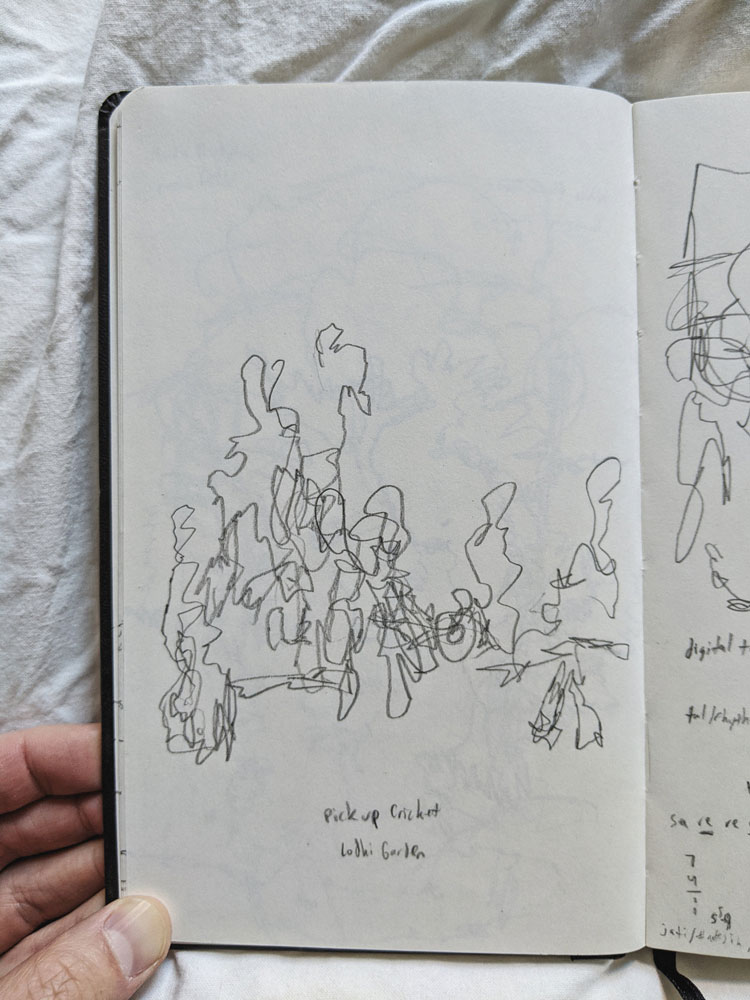 pickup Cricket
Lodhi Garden
digital t
tal/rhyth
sa re re
7
4
1
jati/